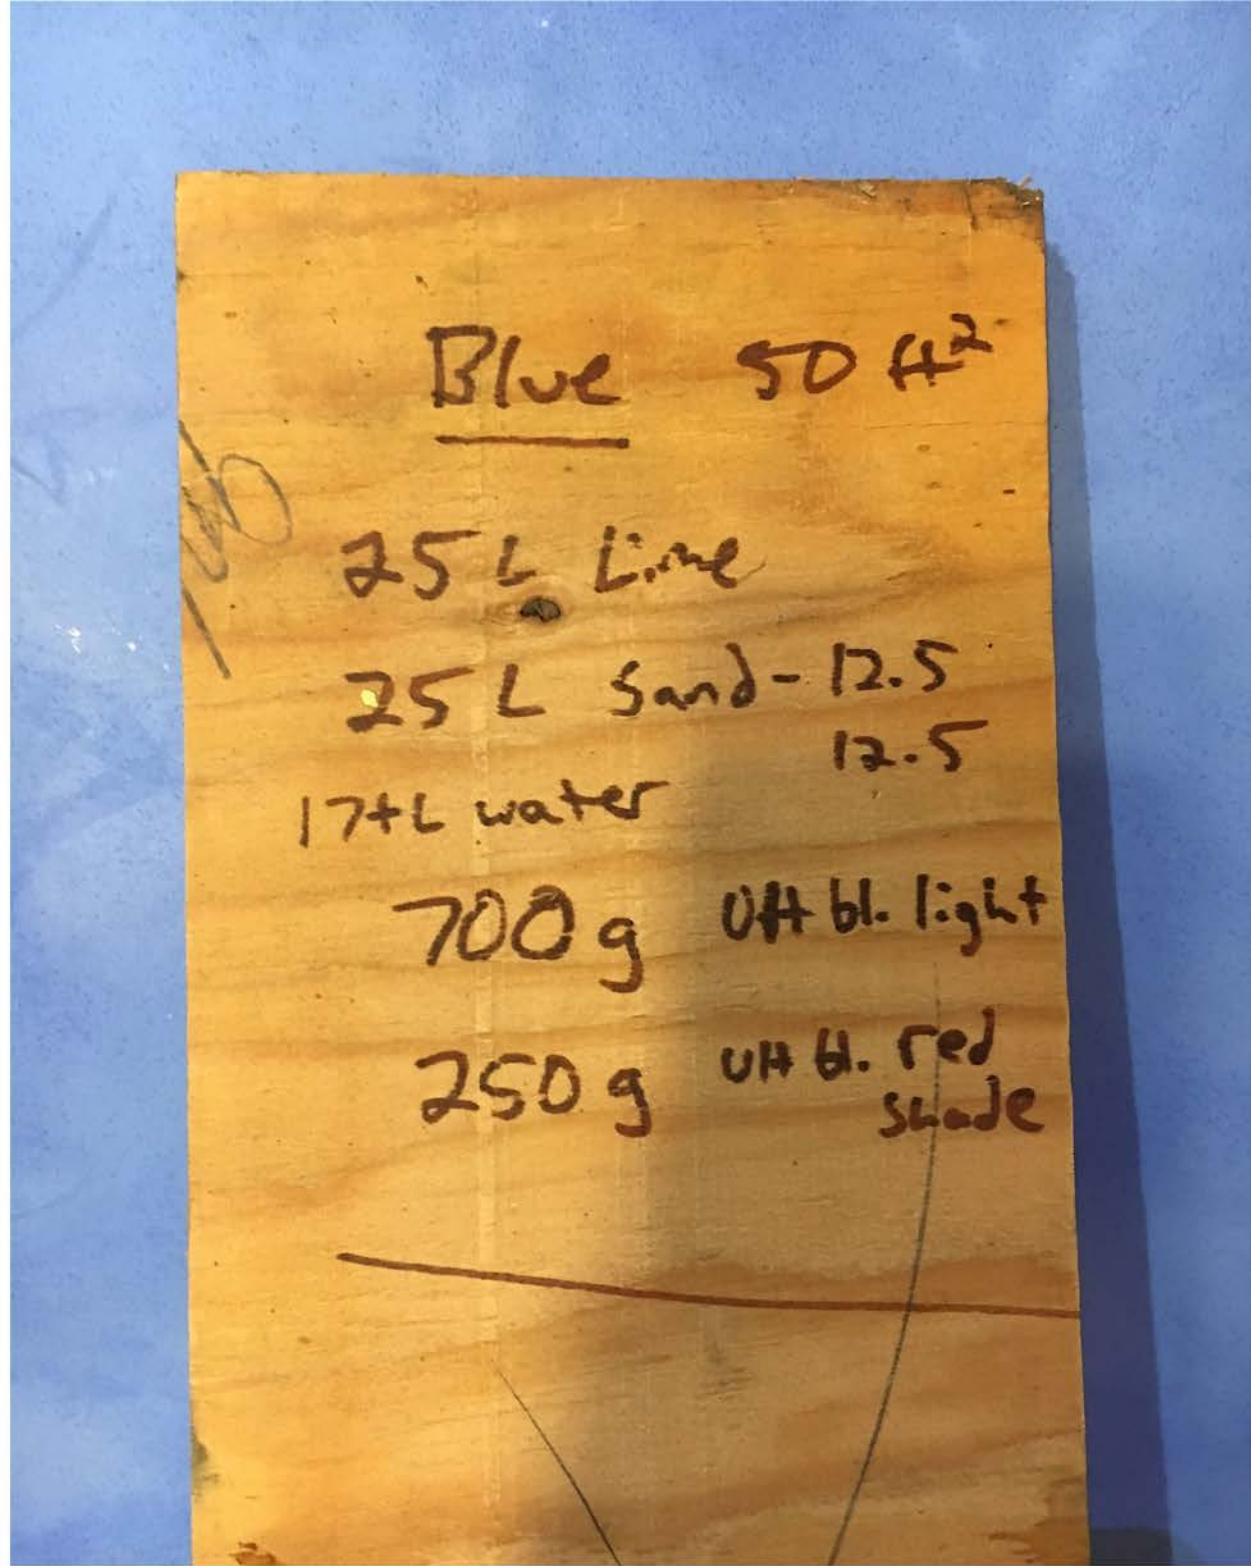 Blue 50 ft²
25 L Lime
25 L Sand - 12.5
12.5
17+L water
700 g Ult bl. light
250 g Ult bl. red
shade